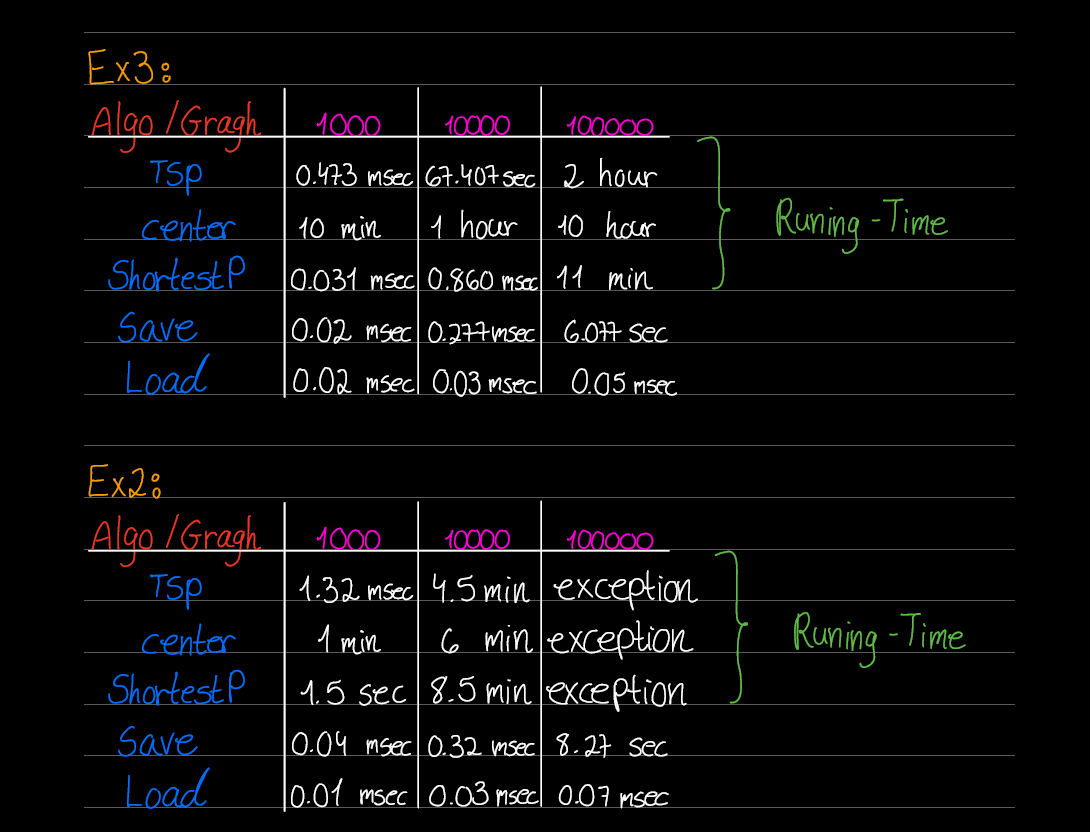 Ex3:
Algo/Gragh 1000 10000 100000
TSp 0.473 msec 67.407 sec 2 hour
center 10 min 1 hour 10 hour
Runing-Time
ShortestP 0.031 msec 0.860 msec 11 min
Save 0.02 msec 0.277 msec 6.077 sec
Load 0.02 msec 0.03 msec 0.05 msec
Ex2:
Algo/Gragh 1000 10000 100000
TSp 1.32 msec 4.5 min exception
center 1 min 6 min exception
Runing-Time
ShortestP 1.5 sec 8.5 min exception
Save 0.04 msec 0.32 msec 8.27 sec
Load 0.01 msec 0.03 msec 0.07 msec